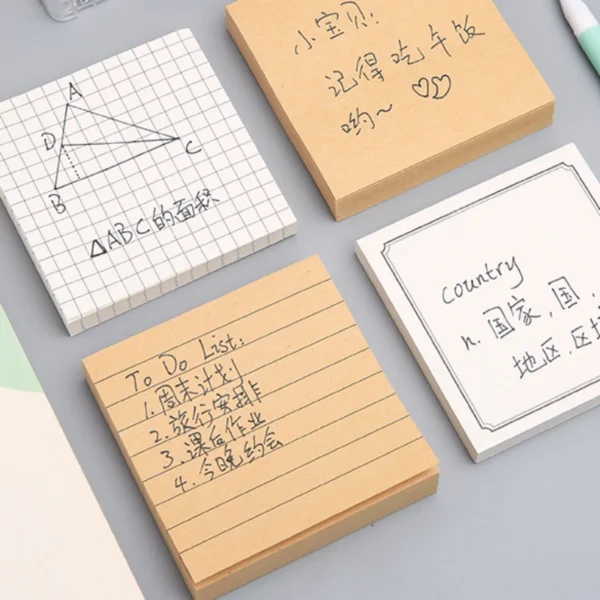 A
D
B
C
△ABC的面积
小宝贝:
记得吃午饭
哟~ ♡♡
To Do List:
1.周末计划
2.旅行安排
3.课后作业
4.今晚约会
country
n. 国家,国,
地区,区域